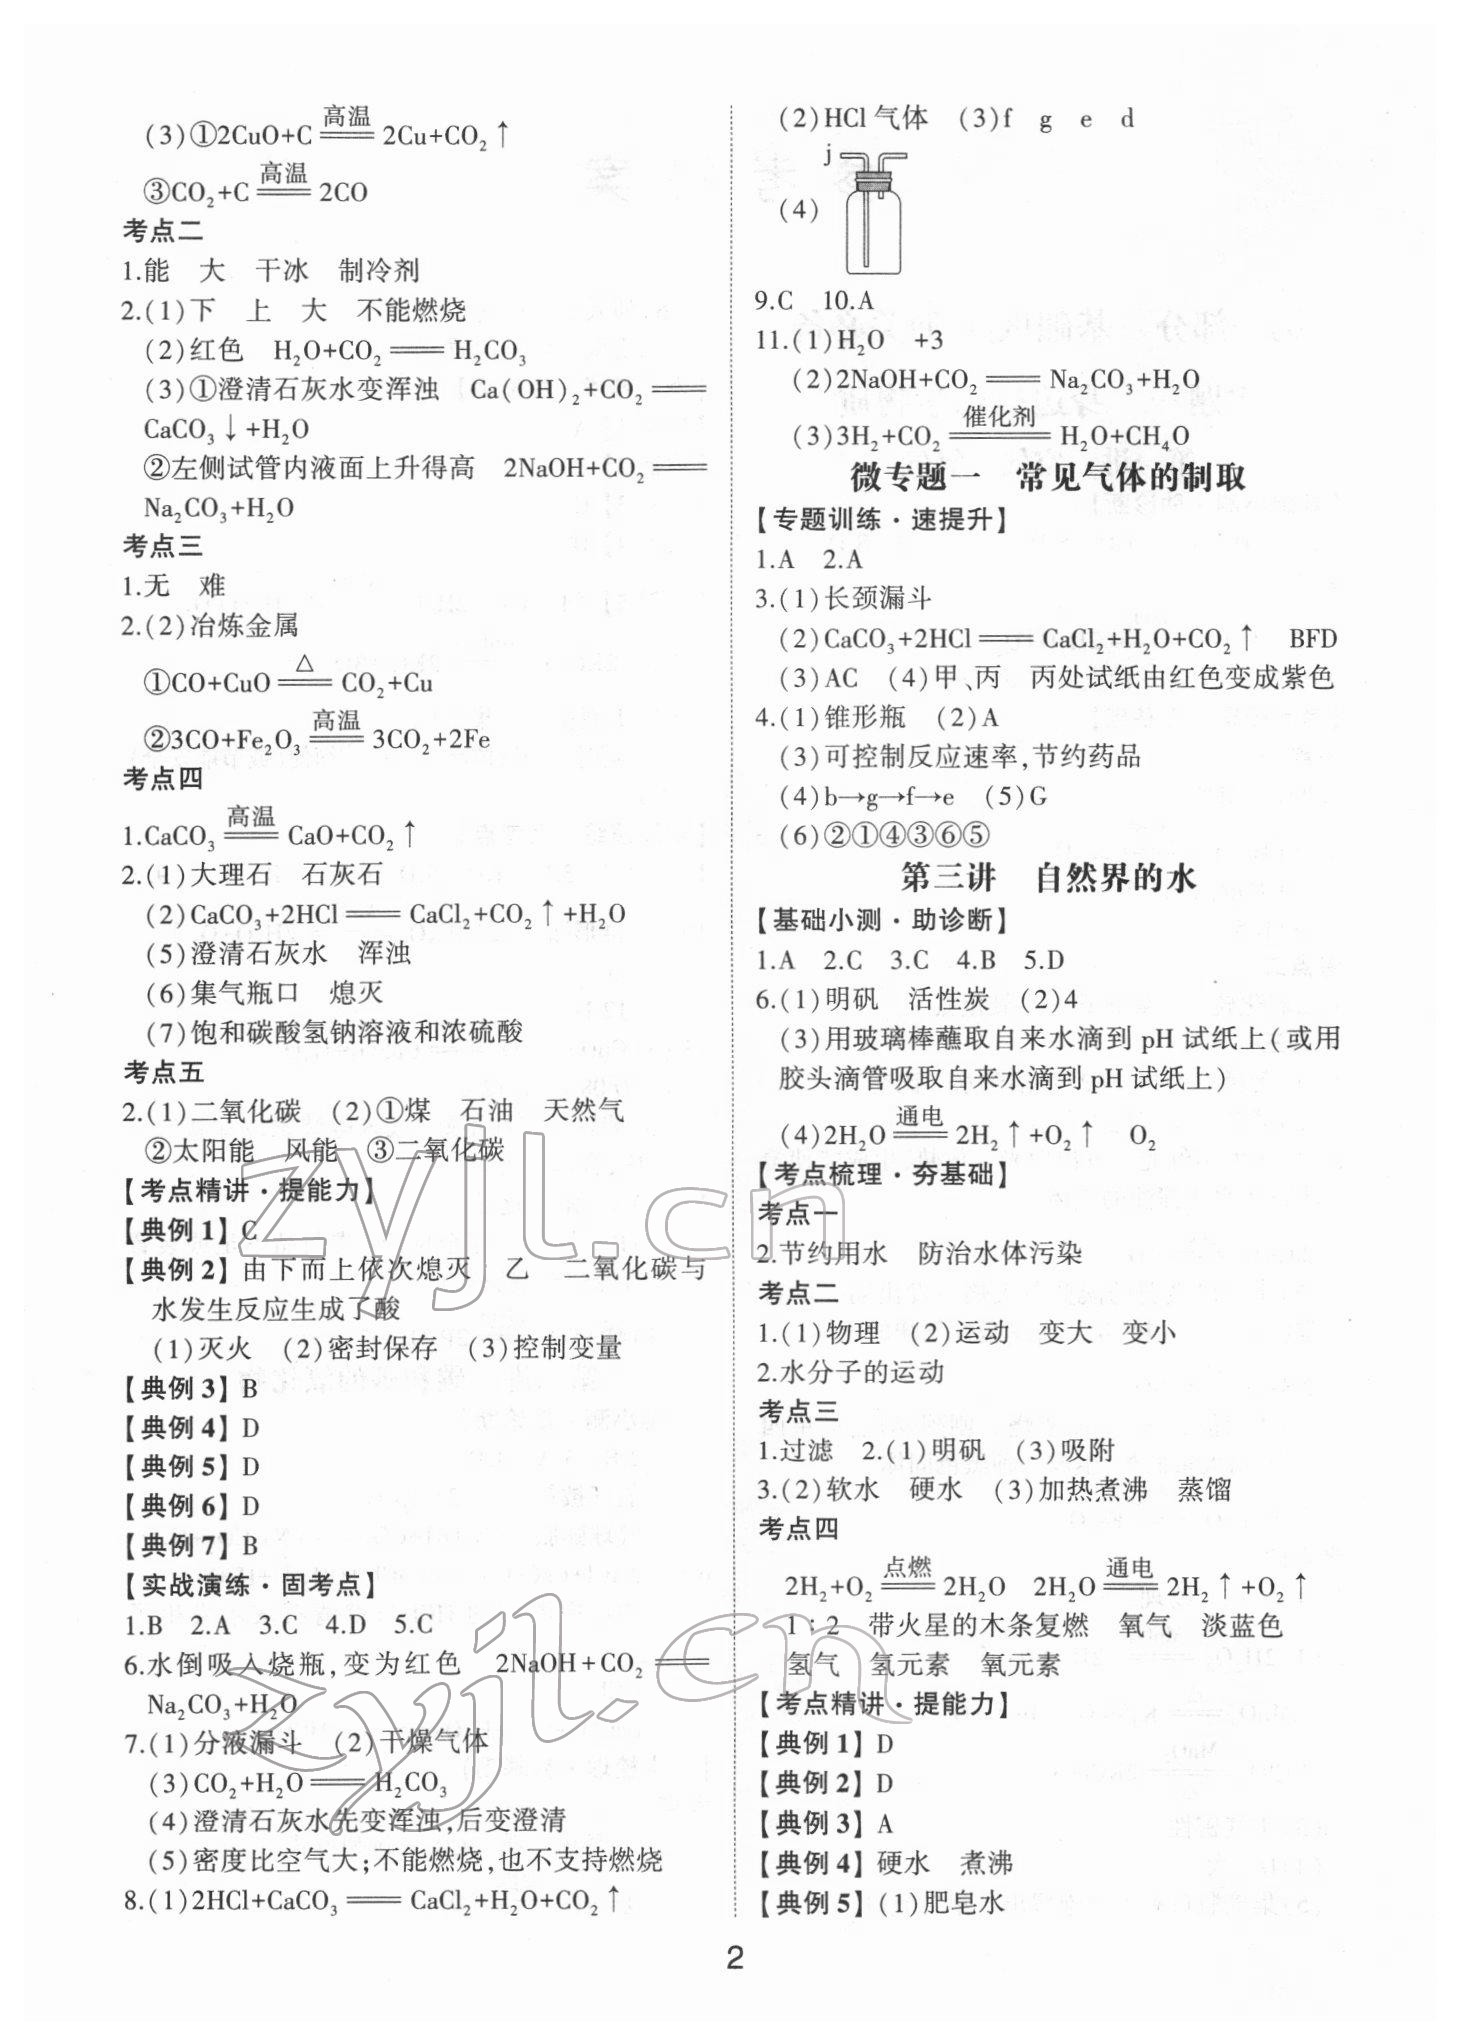 (3)①2CuO+C ══高温══ 2Cu+CO₂↑
③CO₂+C ══高温══ 2CO
考点二
1.能 大 干冰 制冷剂
2.(1)下 上 大 不能燃烧
(2)红色 H₂O+CO₂ ═══ H₂CO₃
(3)①澄清石灰水变浑浊 Ca(OH)₂+CO₂ ═══
CaCO₃↓+H₂O
②左侧试管内液面上升得高 2NaOH+CO₂ ═══
Na₂CO₃+H₂O
考点三
1.无 难
2.(2)冶炼金属
①CO+CuO ══△══ CO₂+Cu
②3CO+Fe₂O₃ ══高温══ 3CO₂+2Fe
考点四
1.CaCO₃ ══高温══ CaO+CO₂↑
2.(1)大理石 石灰石
(2)CaCO₃+2HCl ═══ CaCl₂+CO₂↑+H₂O
(5)澄清石灰水 浑浊
(6)集气瓶口 熄灭
(7)饱和碳酸氢钠溶液和浓硫酸
考点五
2.(1)二氧化碳 (2)①煤 石油 天然气
②太阳能 风能 ③二氧化碳
【考点精讲·提能力】
【典例1】C
【典例2】由下而上依次熄灭 乙 二氧化碳与
水发生反应生成了酸
(1)灭火 (2)密封保存 (3)控制变量
【典例3】B
【典例4】D
【典例5】D
【典例6】D
【典例7】B
【实战演练·固考点】
1.B 2.A 3.C 4.D 5.C
6.水倒吸入烧瓶,变为红色 2NaOH+CO₂ ═══
Na₂CO₃+H₂O
7.(1)分液漏斗 (2)干燥气体
(3)CO₂+H₂O ═══ H₂CO₃
(4)澄清石灰水先变浑浊,后变澄清
(5)密度比空气大;不能燃烧,也不支持燃烧
8.(1)2HCl+CaCO₃ ═══ CaCl₂+H₂O+CO₂↑
(2)HCl气体 (3)f g e d
j
(4)
9.C 10.A
11.(1)H₂O +3
(2)2NaOH+CO₂ ═══ Na₂CO₃+H₂O
(3)3H₂+CO₂ ══催化剂══ H₂O+CH₄O
微专题一 常见气体的制取
【专题训练·速提升】
1.A 2.A
3.(1)长颈漏斗
(2)CaCO₃+2HCl ═══ CaCl₂+H₂O+CO₂↑ BFD
(3)AC (4)甲、丙 丙处试纸由红色变成紫色
4.(1)锥形瓶 (2)A
(3)可控制反应速率,节约药品
(4)b→g→f→e (5)G
(6)②①④③⑥⑤
第三讲 自然界的水
【基础小测·助诊断】
1.A 2.C 3.C 4.B 5.D
6.(1)明矾 活性炭 (2)4
(3)用玻璃棒蘸取自来水滴到pH试纸上(或用
胶头滴管吸取自来水滴到pH试纸上)
(4)2H₂O ══通电══ 2H₂↑+O₂↑ O₂
【考点梳理·夯基础】
考点一
2.节约用水 防治水体污染
考点二
1.(1)物理 (2)运动 变大 变小
2.水分子的运动
考点三
1.过滤 2.(1)明矾 (3)吸附
3.(2)软水 硬水 (3)加热煮沸 蒸馏
考点四
2H₂+O₂ ══点燃══ 2H₂O 2H₂O ══通电══ 2H₂↑+O₂↑
1∶2 带火星的木条复燃 氧气 淡蓝色
氢气 氢元素 氧元素
【考点精讲·提能力】
【典例1】D
【典例2】D
【典例3】A
【典例4】硬水 煮沸
【典例5】(1)肥皂水
2
zyjl.cn
zyjl.cn